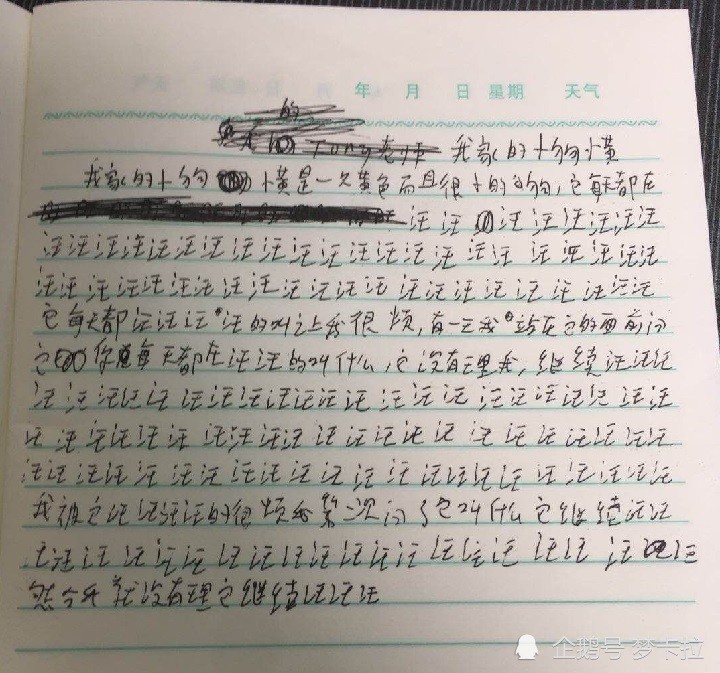 年 月 日 星期 天气
的
Tony老师 我家的小狗小黄
我家的小狗小黄是一只黄色而且很小的母狗,它每天都在
汪汪汪汪汪汪汪汪
汪汪汪汪汪汪汪汪汪汪汪汪汪汪汪汪汪汪汪汪汪汪汪
汪汪汪汪汪汪汪汪汪汪汪汪汪汪汪汪汪汪汪汪汪汪汪
它每天都汪汪汪汪的叫让我很烦,有一天我站在它的面前问
它你每天都在汪汪的叫什么,它没有理我,继续汪汪汪
汪汪汪汪汪汪汪汪汪汪汪汪汪汪汪汪汪汪汪汪汪汪汪汪
汪汪汪汪汪汪汪汪汪汪汪汪汪汪汪汪汪汪汪汪汪汪汪
汪汪汪汪汪汪汪汪汪汪汪汪汪汪汪汪汪汪汪汪汪汪汪
我被它汪汪汪汪的很烦我第二次问了它叫什么它继续汪汪
汪汪汪汪汪汪汪汪汪汪汪汪汪汪汪汪汪汪汪汪汪
然今天就没有理它继续汪汪汪
企鹅号 梦卡拉